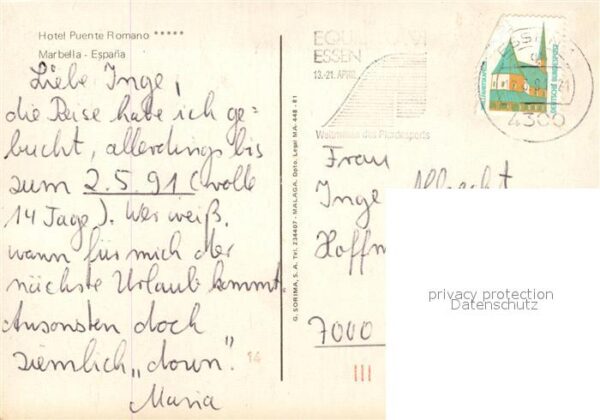 Hotel Puente Romano *****
Marbella - España
Liebe Inge,
die Reise habe ich ge=
bucht, allerdings bis
zum 2.5.91 (volle
14 Tage). Wer weiß,
wann für mich der
nächste Urlaub kommt.
Ansonsten doch
ziemlich „down".
Maria
14
G. SORIMA, S. A. Tlf. 234407 - MALAGA. Dpto. Legal MA-448-81
EQUI
ESSEN
13.-21. APRIL
Weltmesse des Pferdesports
ESSEN
4300
DEUTSCHE BUNDESPOST
Frau
Inge Albrecht
Hoffm
7000
privacy protection
Datenschutz